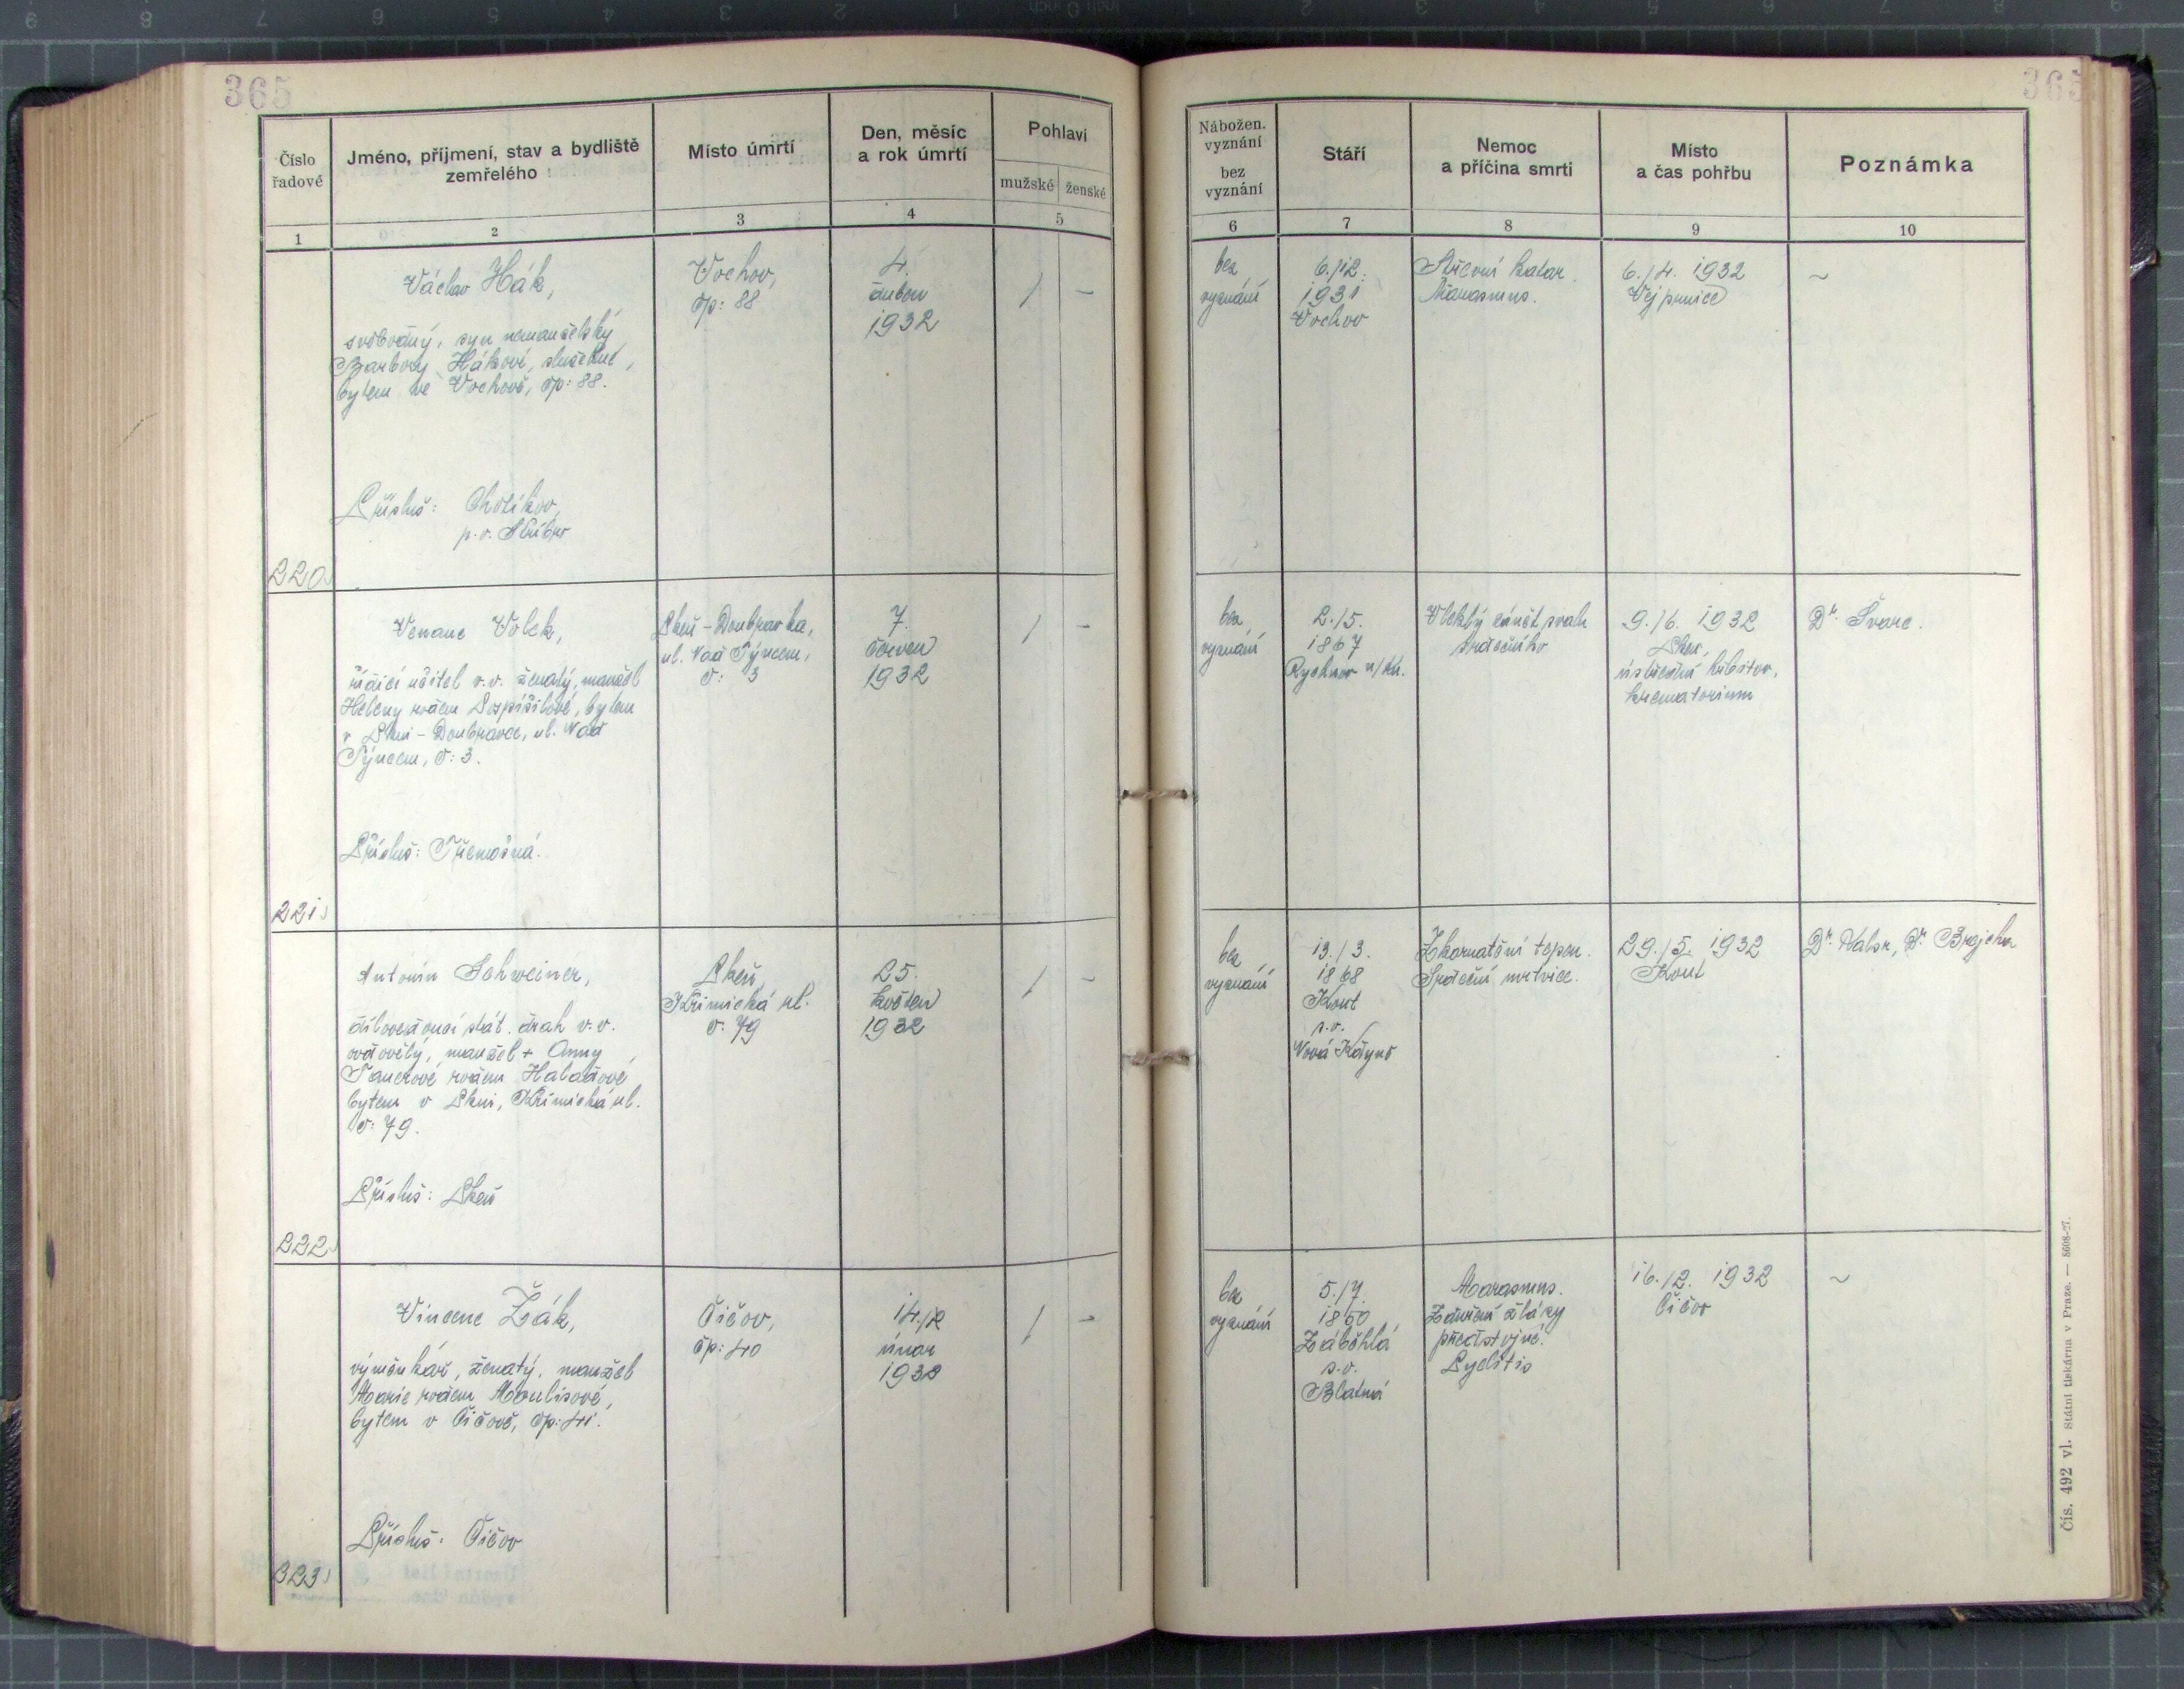 365
365
Číslo řadové
Jméno, příjmení, stav a bydliště zemřelého
Místo úmrtí
Den, měsíc a rok úmrtí
Pohlaví
mužské
ženské
Nábožen. vyznání
bez vyznání
Stáří
Nemoc a příčina smrti
Místo a čas pohřbu
Poznámka
1
2
3
4
5
6
7
8
9
10
Václav Hák,
svobodný, syn nemanželský
Barbory Hákové, služebné,
bytem ve Vochově, čp: 88.
Přísluš: Chotíkov,
p. o. Stříbro
220
Vochov,
čp: 88
4.
duben
1932
/ -
bez
vyznání
6./12.
1931
Vochov
Střevní katar.
Marasmus.
6./4. 1932
Vejprnice
~
Venanc Volek,
řídící učitel v. v. ženatý, manžel
Heleny rodem Pospíšilové, bytem
v Plzni - Doubravce, ul. Nad
Týncem, č: 3.
Přísluš: Třemošná.
221
Plzeň - Doubravka,
ul. Nad Týncem,
č: 3
7.
červen
1932
/ -
bez
vyznání
2./5.
1867
Rychnov n/Kn.
Vleklý zánět svalu
srdečního
9./6. 1932
Plzeň,
ústřední hřbitov,
krematorium
Dr. Švarc.
Antonín Schweiner,
dílovedoucí stát. drah v. v.
ovdovělý, manžel + Anny
rodem
bytem v Plzni, Křimická ul.
č: 79.
Přísluš: Plzeň
222
Plzeň,
Křimická ul.
č: 79
25.
květen
1932
/ -
bez
vyznání
13./3.
1868
Kout
s. o.
Nová Kdyně
Zkornatění tepen.
Srdeční mrtvice.
29./5. 1932
Kout
Dr. Dr. Brejcha
Vincenc Žák,
výměnkář, ženatý, manžel
Marie rodem Moulisové,
bytem v Čičově, čp: 41.
Přísluš: Čičov
223
Čičov,
čp: 40
14./2
únor
1932
/ -
bez
vyznání
5./7.
1850
Záběhlá
s. o.
Blatná
Marasmus.
žlázy
předstojné.
16./2. 1932
Čičov
~
Čís. 492 vl. Státní tiskárna v Praze. — 8608-27.